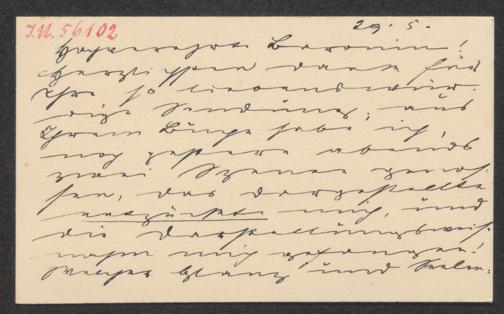 I.N. 56102
29. 5.
Hochverehrte Baronin!
Herzlichsten Dank für
Ihre so liebenswür-
dige Sendung; aus
Ihrem Buche habe ich,
noch gestern abends
zwei Szenen genos-
sen, das Dargestellte
entzückte mich, und
die Darstellungsweise
nahm mich gefangen!
Welcher Glanz und Seelen-